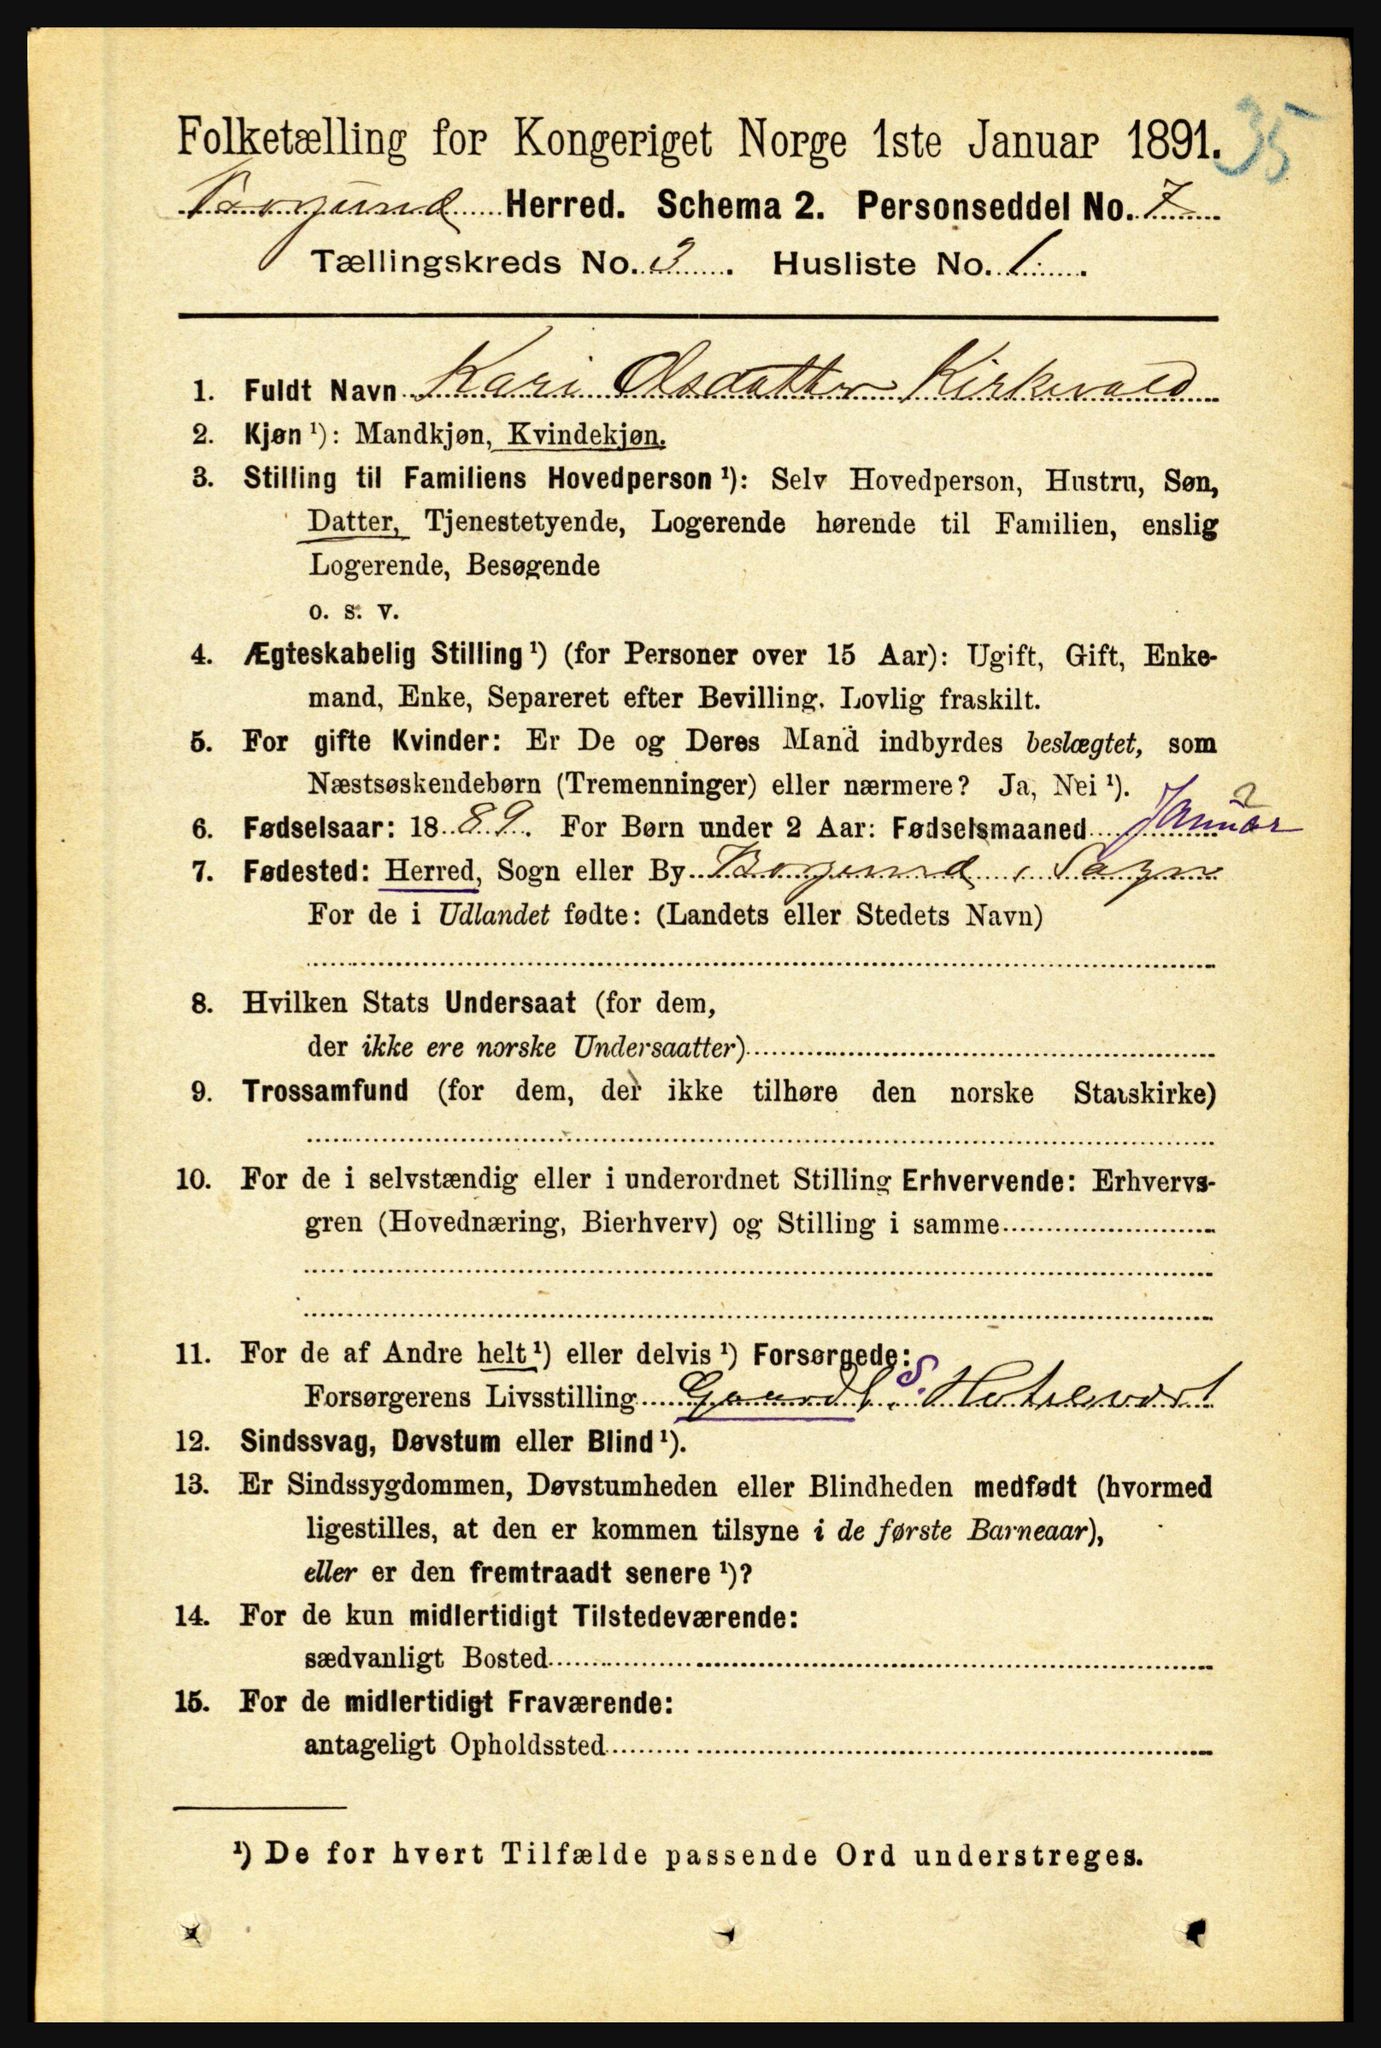 Folketælling for Kongeriget Norge 1ste Januar 1891.
35
Borgund Herred. Schema 2. Personseddel No. 7
Tællingskreds No. 3. Husliste No. 1.
1. Fuldt Navn Kari Olsdatter Kirkevold
2. Kjøn ¹): Mandkjøn, Kvindekjøn.
3. Stilling til Familiens Hovedperson ¹): Selv Hovedperson, Hustru, Søn,
Datter, Tjenestetyende, Logerende hørende til Familien, enslig
Logerende, Besøgende
o. s. v.
4. Ægteskabelig Stilling ¹) (for Personer over 15 Aar): Ugift, Gift, Enke-
mand, Enke, Separeret efter Bevilling. Lovlig fraskilt.
5. For gifte Kvinder: Er De og Deres Mand indbyrdes beslægtet, som
Næstsøskendebørn (Tremenninger) eller nærmere? Ja, Nei ¹).
6. Fødselsaar: 1889. For Børn under 2 Aar: Fødselsmaaned Januar ?
7. Fødested: Herred, Sogn eller By Borgund i Sogn
For de i Udlandet fødte: (Landets eller Stedets Navn)
8. Hvilken Stats Undersaat (for dem,
der ikke ere norske Undersaatter)
9. Trossamfund (for dem, der ikke tilhøre den norske Statskirke)
10. For de i selvstændig eller i underordnet Stilling Erhvervende: Erhvervs-
gren (Hovednæring, Bierhverv) og Stilling i samme
11. For de af Andre helt ¹) eller delvis ¹) Forsørgede:
Forsørgerens Livsstilling Gaardb. S. Hotelvært
12. Sindssvag, Døvstum eller Blind ¹).
13. Er Sindssygdommen, Døvstumheden eller Blindheden medfødt (hvormed
ligestilles, at den er kommen tilsyne i de første Barneaar),
eller er den fremtraadt senere ¹)?
14. For de kun midlertidigt Tilstedeværende:
sædvanligt Bosted
15. For de midlertidigt Fraværende:
antageligt Opholdssted
¹) De for hvert Tilfælde passende Ord understreges.